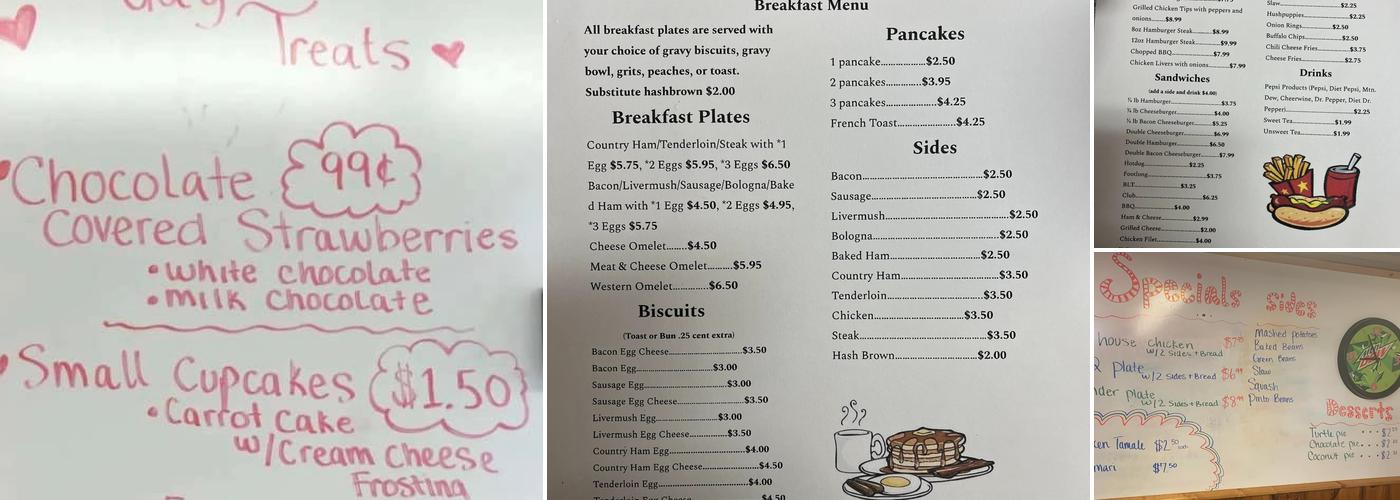 Treats
Chocolate 99¢
Covered Strawberries
• white chocolate
• milk chocolate
Small Cupcakes $1.50
• Carrot Cake
w/Cream Cheese
Frosting
Breakfast Menu
All breakfast plates are served with
your choice of gravy biscuits, gravy
bowl, grits, peaches, or toast.
Substitute hashbrown $2.00
Breakfast Plates
Country Ham/Tenderloin/Steak with *1
Egg $5.75, *2 Eggs $5.95, *3 Eggs $6.50
Bacon/Livermush/Sausage/Bologna/Bake
d Ham with *1 Egg $4.50, *2 Eggs $4.95,
*3 Eggs $5.75
Cheese Omelet........$4.50
Meat & Cheese Omelet..........$5.95
Western Omelet.............$6.50
Biscuits
(Toast or Bun .25 cent extra)
Bacon Egg Cheese............................$3.50
Bacon Egg............................$3.00
Sausage Egg............................$3.00
Sausage Egg Cheese............................$3.50
Livermush Egg............................$3.00
Livermush Egg Cheese............................$3.50
Country Ham Egg............................$4.00
Country Ham Egg Cheese............................$4.50
Tenderloin Egg............................$4.00
Tenderloin Egg Cheese............................$4.50
Pancakes
1 pancake..................$2.50
2 pancakes...............$3.95
3 pancakes.....................$4.25
French Toast.......................$4.25
Sides
Bacon................................................$2.50
Sausage..............................................$2.50
Livermush................................................$2.50
Bologna................................................$2.50
Baked Ham......................................$2.50
Country Ham......................................$3.50
Tenderloin......................................$3.50
Chicken......................................$3.50
Steak................................................$3.50
Hash Brown......................................$2.00
Grilled Chicken Tips with peppers and
onions......$8.99
8oz Hamburger Steak..................$8.99
12oz Hamburger Steak..................$9.99
Chopped BBQ..................$7.99
Chicken Livers with onions........$7.99
Sandwiches
(add a side and drink $4.00)
¼ lb Hamburger..................$3.75
¼ lb Cheeseburger..................$4.00
¼ lb Bacon Cheeseburger..................$5.25
Double Cheeseburger..................$6.99
Double Hamburger..................$6.50
Double Bacon Cheeseburger..................$7.99
Hotdog..................$2.25
Footlong..................$3.75
BLT..................$3.25
Club..................$6.25
BBQ..................$4.00
Ham & Cheese..................$2.99
Grilled Cheese..................$2.00
Chicken Filet..................$4.00
Slaw..................$2.25
Hushpuppies..................$2.25
Onion Rings..................$2.50
Buffalo Chips..................$2.50
Chili Cheese Fries..................$3.75
Cheese Fries..................$2.75
Drinks
Pepsi Products (Pepsi, Diet Pepsi, Mtn.
Dew, Cheerwine, Dr. Pepper, Diet Dr.
Pepper)..................$2.25
Sweet Tea..................$1.99
Unsweet Tea..................$1.99
Specials
house chicken
w/2 Sides + Bread
Plate
w/2 Sides + Bread
plate
w/2 Sides + Bread
Tamale $2.50
$7.50
Sides
Mashed potatoes
Baked Beans
Green Beans
Slaw
Squash
Pinto Beans
Desserts
Turtle pie
Chocolate pie
Coconut pie